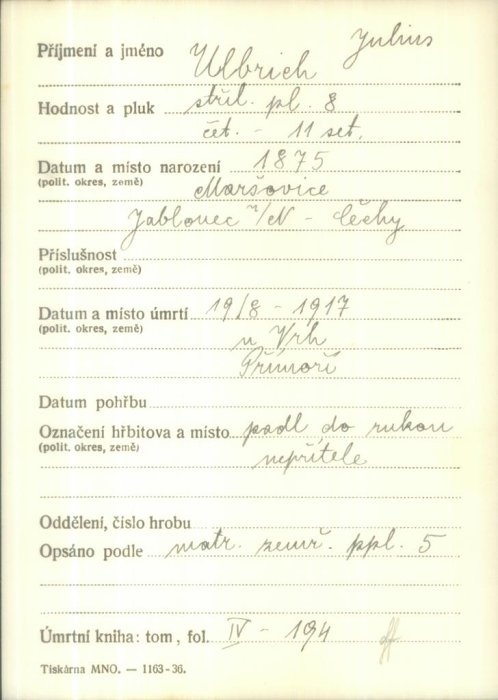 Příjmení a jméno Ulbrich Julius
Hodnost a pluk střel. pl. 8
čet. - 11 set.
Datum a místo narození 1875
(polit. okres, země) Maršovice
Jablonec n/N - Čechy
Příslušnost
(polit. okres, země)
Datum a místo úmrtí 19/8 - 1917
(polit. okres, země) u Vrh
Přímoří
Datum pohřbu
Označení hřbitova a místo padl do rukou
(polit. okres, země) nepřítele
Oddělení, číslo hrobu
Opsáno podle matr. zemř. ppl. 5
Úmrtní kniha: tom, fol. IV - 194
Tiskárna MNO. — 1163-36.